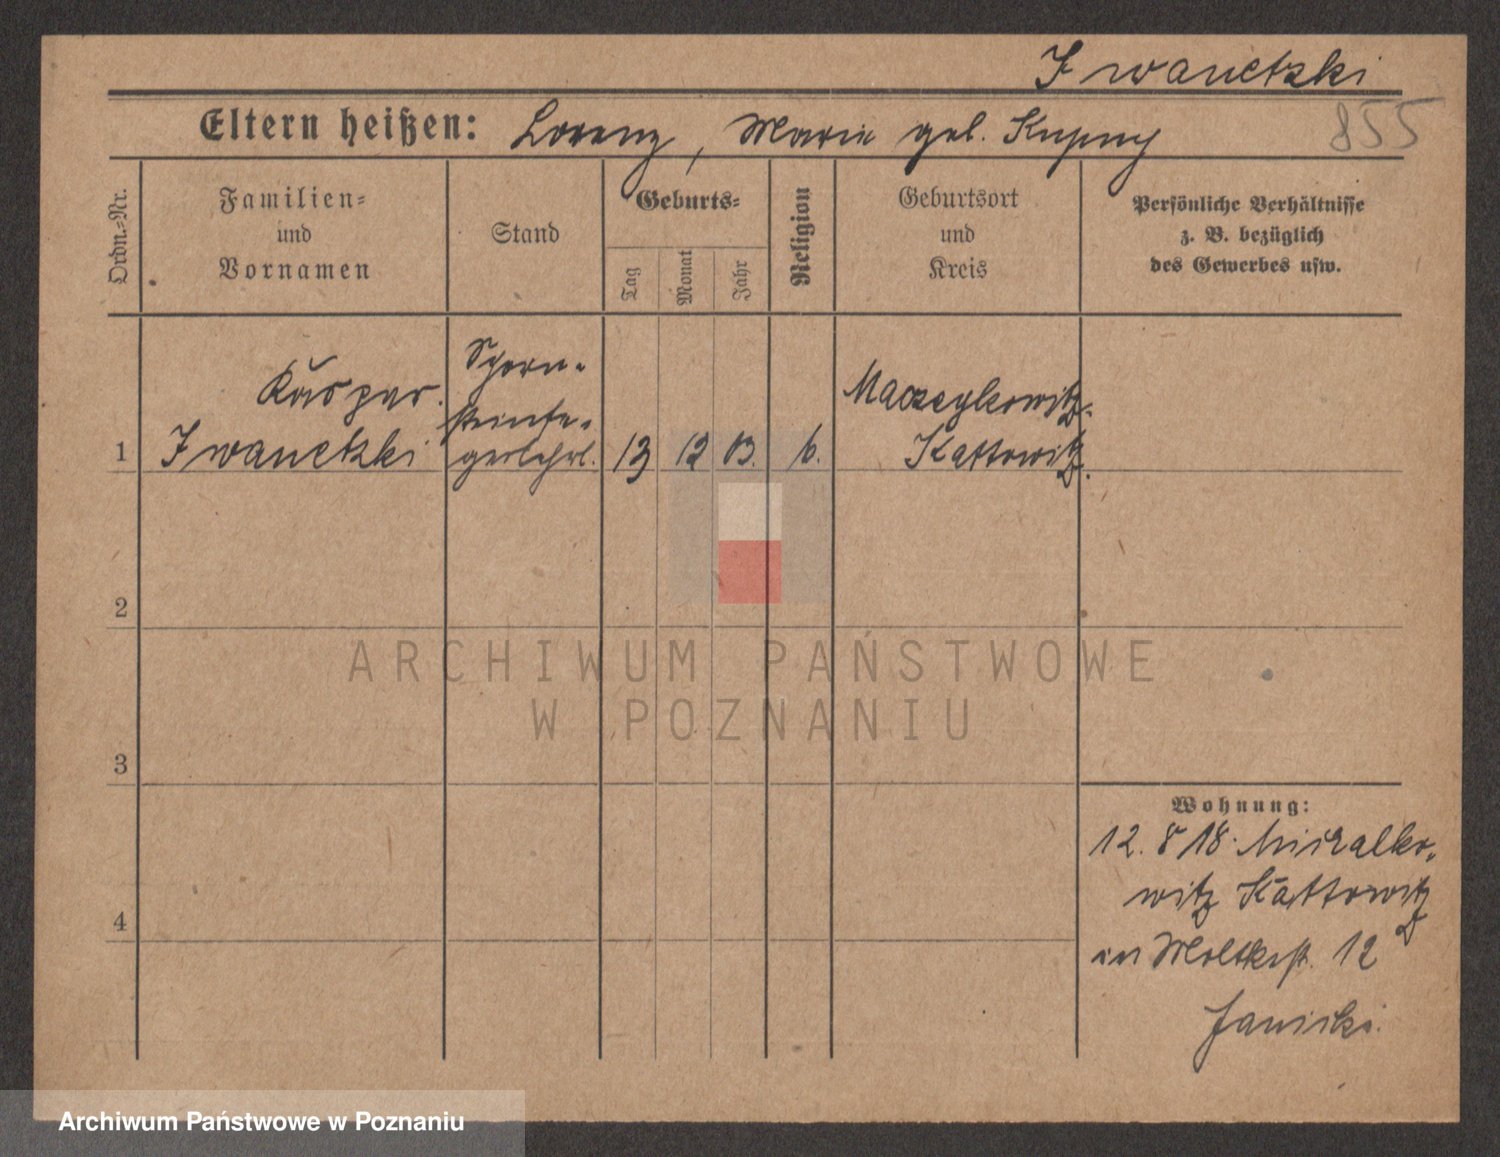 Iwanetzki
855
Eltern heißen: Lorenz, Marie geb. Kupny
Ordn.=Nr.
Familien=
und
Vornamen
Stand
Geburts=
Tag
Monat
Jahr
Religion
Geburtsort
und
Kreis
Persönliche Verhältnisse
z. B. bezüglich
des Gewerbes usw.
1
Kaspar
Iwanetzki
Schorn-
steinfe-
gerlehrl.
13
12
03.
k.
Maczeykowitz
Kattowitz
2
3
4
Wohnung:
12. 8 18. Michalko-
witz Kattowitz
in Moltkestr. 12
Janicki.
ARCHIWUM PAŃSTWOWE
W POZNANIU
Archiwum Państwowe w Poznaniu